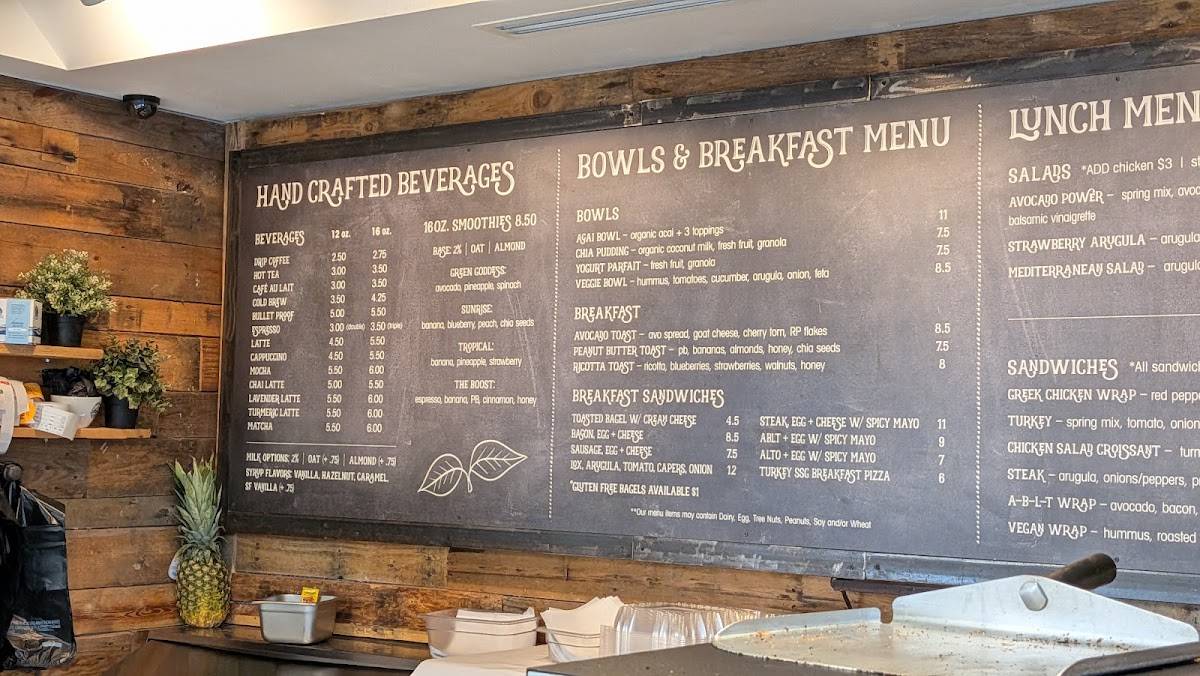 HAND CRAFTED BEVERAGES
BEVERAGES 12 oz. 16 oz.
DRIP COFFEE 2.50 2.75
HOT TEA 3.00 3.50
CAFÉ AU LAIT 3.00 3.50
COLD BREW 3.50 4.25
BULLET PROOF 5.00 5.50
ESPRESSO 3.00 (double) 3.50 (triple)
LATTE 4.50 5.50
CAPPUCCINO 4.50 5.50
MOCHA 5.50 6.00
CHAI LATTE 5.00 5.50
LAVENDER LATTE 5.50 6.00
TURMERIC LATTE 5.50 6.00
MATCHA 5.50 6.00
MILK OPTIONS: 2% | OAT (+ .75) | ALMOND (+ .75)
SYRUP FLAVORS: VANILLA, HAZELNUT, CARAMEL
SF VANILLA (+ .75)
16 OZ. SMOOTHIES 8.50
BASE: 2% | OAT | ALMOND
GREEN GODDESS:
avocado, pineapple, spinach
SUNRISE:
banana, blueberry, peach, chia seeds
TROPICAL:
banana, pineapple, strawberry
THE BOOST:
espresso, banana, PB, cinnamon, honey
BOWLS & BREAKFAST MENU
BOWLS
AÇAI BOWL – organic acai + 3 toppings 11
CHIA PUDDING – organic coconut milk, fresh fruit, granola 7.5
YOGURT PARFAIT – fresh fruit, granola 7.5
VEGGIE BOWL – hummus, tomatoes, cucumber, arugula, onion, feta 8.5
BREAKFAST
AVOCADO TOAST – avo spread, goat cheese, cherry tom, RP flakes 8.5
PEANUT BUTTER TOAST – pb, bananas, almonds, honey, chia seeds 7.5
RICOTTA TOAST – ricotta, blueberries, strawberries, walnuts, honey 8
BREAKFAST SANDWICHES
TOASTED BAGEL W/ CREAM CHEESE 4.5
BACON, EGG + CHEESE 8.5
SAUSAGE, EGG + CHEESE 7.5
LOX, ARUGULA, TOMATO, CAPERS, ONION 12
*GLUTEN FREE BAGELS AVAILABLE $1
STEAK, EGG + CHEESE W/ SPICY MAYO 11
ABLT + EGG W/ SPICY MAYO 9
ALTO + EGG W/ SPICY MAYO 7
TURKEY SSG BREAKFAST PIZZA 6
**Our menu items may contain Dairy, Egg, Tree Nuts, Peanuts, Soy and/or Wheat
LUNCH MEN
SALADS *ADD chicken $3 | st
AVOCADO POWER – spring mix, avoc
balsamic vinaigrette
STRAWBERRY ARUGULA – arugula
MEDITERRANEAN SALAD – arugula
SANDWICHES *All sandwich
GREEK CHICKEN WRAP – red peppe
TURKEY – spring mix, tomato, onion
CHICKEN SALAD CROISSANT – turn
STEAK – arugula, onions/peppers, p
A-B-L-T WRAP – avocado, bacon,
VEGAN WRAP – hummus, roasted